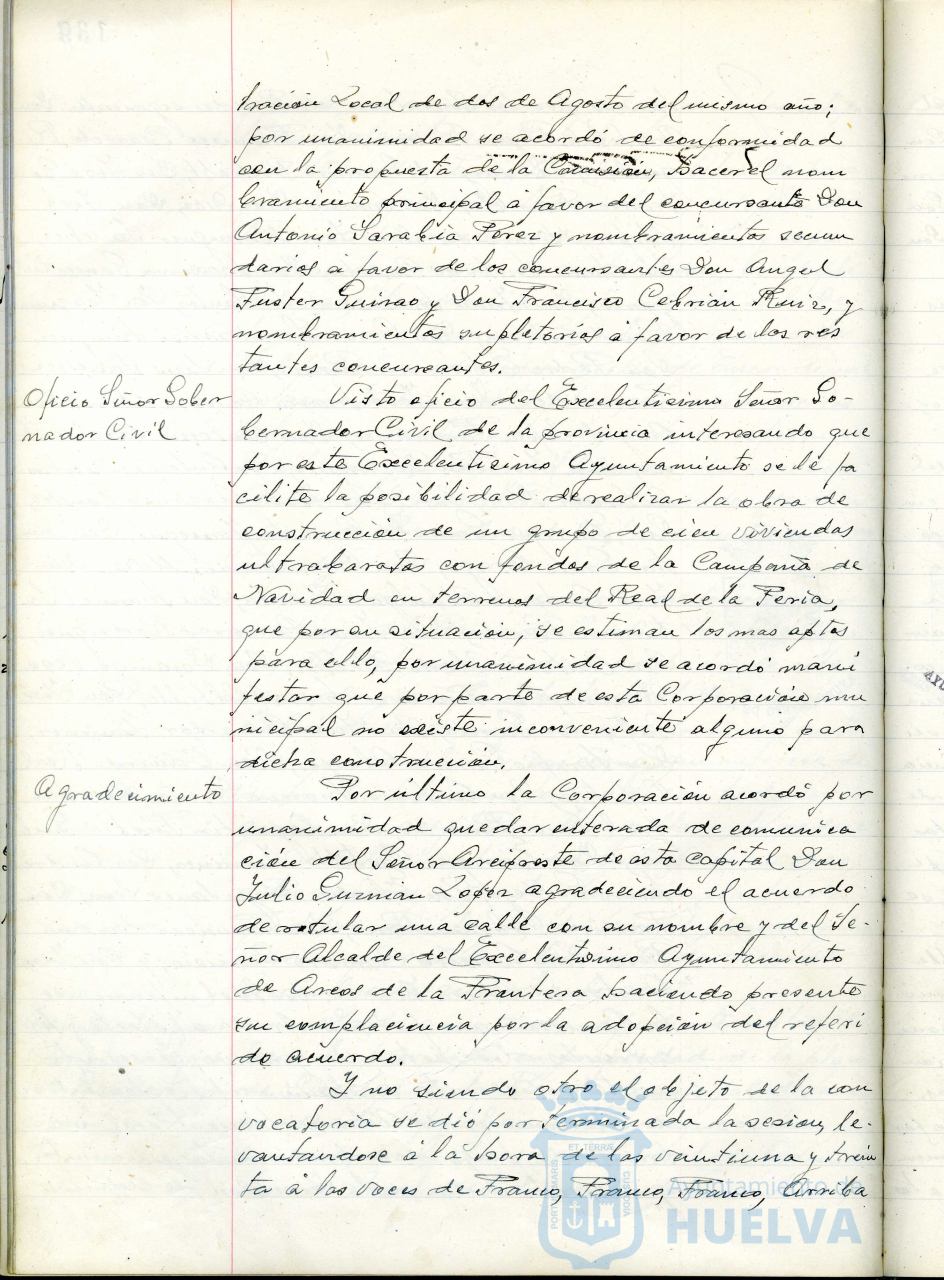 tración Local de dos de Agosto del mismo año;
por unanimidad se acordó de conformidad
con la propuesta de la Comisión, hacer el nom
bramiento principal á favor del concursante Don
Antonio Sarabia Perez y nombramientos secun
darios á favor de los concursantes Don Angel
Fuster Guirao y Don Francisco Cebrián Ruiz, y
nombramientos supletorios á favor de los res
tantes concursantes.
Oficio Señor Gober
nador Civil
Visto oficio del Excelentisimo Señor Go-
bernador Civil de la provincia interesando que
por este Excelentisimo Ayuntamiento se le fa
cilite la posibilidad de realizar la obra de
construcción de un grupo de cien viviendas
ultrabaratas con fondos de la Campaña de
Navidad en terrenos del Real de la Feria,
que por su situación, se estiman los mas aptos
para ello, por unanimidad se acordó mani
festar que por parte de esta Corporación mu
nicipal no existe inconveniente alguno para
dicha construcción.
Agradecimiento
Por último la Corporación acordó por
unanimidad quedar enterada de comunica
ción del Señor Arcipreste de esta capital Don
Julio Guzman Lopez agradeciendo el acuerdo
de rotular una calle con su nombre y del Se-
ñor Alcalde del Excelentisimo Ayuntamiento
de Arcos de la Frontera haciendo presente
su complacencia por la adopción del referi
do acuerdo.
Y no siendo otro el objeto de la con
vocatoria se dió por terminada la sesion, le-
vantandose á la hora de las veintiuna y trein
ta á las voces de Franco, Franco, Franco, Arriba
PORTUS MARIS ET TERRE CUSTODIA
Ayuntamiento de
HUELVA